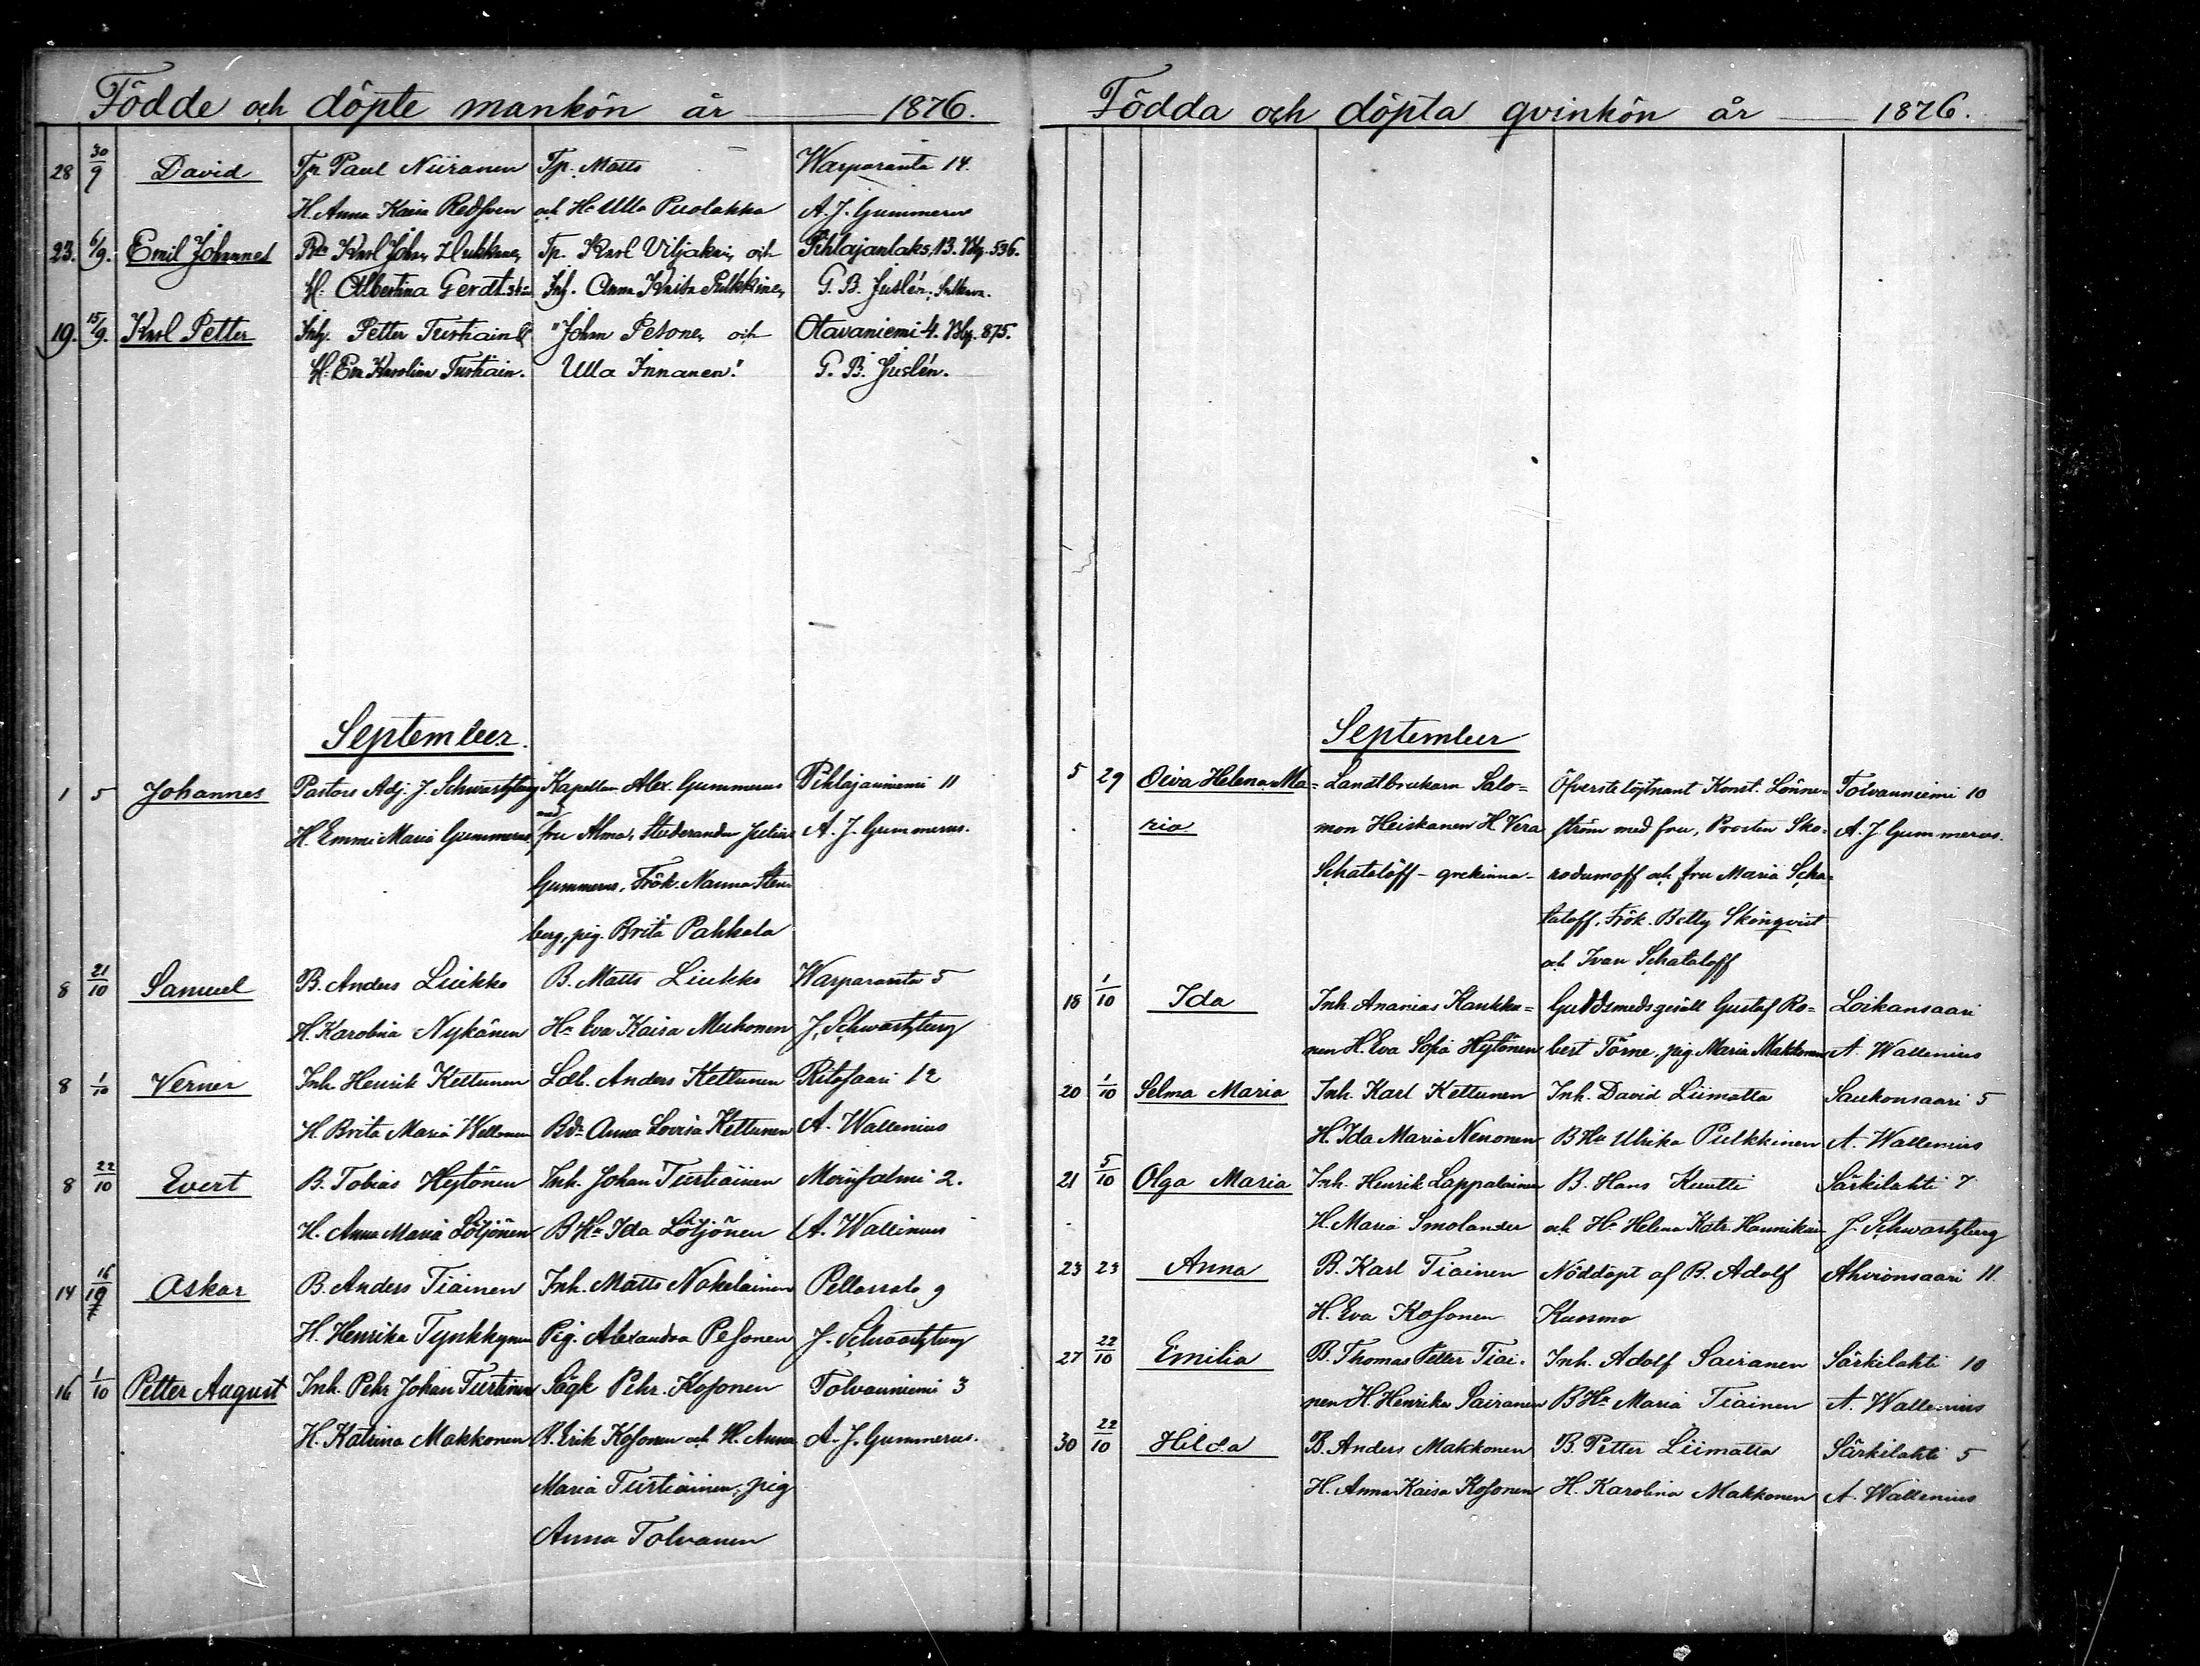 Födde och döpte mankön år 1876.
28 30/9 David Tp. Paul Niiranen Tp. Matts Warparanta 14.
H. Anna Kaisa Redsven och Hu Ulla Puolakka A. J. Gummerus
23. 6/9. Emil Johannes Karl Johan Tp. Karl Viljakai, och Pihlajanlaks, 13. Blg. 536.
H. Albertina Gerdt Inh. Anna Kaisa Pulkkinen, G. B. Juslén,
19. 15/9. Karl Petter Inh. Petter Turtiain & "Johan Pesonen och Otavaniemi 4. Blg. 875.
H. Eva Karolina Turtiain. Ulla Innanen." G. B. Juslén.
September.
1 5 Johannes Pastors Adj. J. Schwartzberg Kapellan Alex. Gummerus Pihlajaniemi 11
H. Emma Maria Gummerus. med fru Alma, Studeranden Julius A. J. Gummerus.
Gummerus, Frök. Nanna Sten
berg, pig. Brita Pakkala
8 21/10 Samuel B. Anders Liukko B. Matts Liukko Warparanta 5
H. Karolina Nykänen Hu Eva Kaisa Muhonen J. Schwartzberg
8 1/10 Verner Inh. Henrik Kettunen Ldb. Anders Kettunen Ritosaari 12
H. Brita Maria Wellonen Bdr Anna Lovisa Kettunen A. Wallenius
8 22/10 Evert B. Tobias Heytönen Inh. Johan Turtiäinen Monisalmi 2.
H. Anna Maria Löljönen B Hu Ida Löljönen A. Wallenius
14 16/10 Oskar B. Anders Tiainen Inh. Matts Nokelainen Pellossalo 9
H. Henrika Tynkkynen Pig. Alexandra Pesonen J. Schwartzberg
16 1/10 Petter August Inh. Pehr Johan Turtinen Sågk Pehr. Kosonen Tolvanniemi 3
H. Katrina Makkonen B. Erik Kosonen och H. Anna A. J. Gummerus.
Maria Turtiainen, pig
Anna Tolvanen
Födda och döpta qvinkön år 1876.
September
5 29 Oiva Helena Ma= Landtbrukarn Salo= Öfverstelöjtnant Konst. Lönne= Tolvanniemi 10
ria mon Heiskanen H. Vera ström med fru, Prosten Sko= A. J. Gummerus.
Schataloff - grekinna - rodumoff och fru Maria Scha=
taloff, Frök. Betty Skönqvist
och Ivan Schataloff
18 1/10 Ida Inh. Ananias Kaukka= Guldsmedsgesäll Gustaf Ro= Loikansaari
nen H. Eva Sofia Heytönen bert Törne, pig Maria Makkonen A. Wallenius
20 1/10 Selma Maria Inh. Karl Kettunen Inh. David Liimatta Saukonsaari 5
H. Ida Maria Nenonen B Hu Ulrika Pulkkinen A. Wallenius
21 5/10 Olga Maria Inh. Henrik Lappalainen B. Hans Kuutti Särkilahti 7
H. Maria Smolander och Hu Helena Katr. Hannikain J. Schwartzberg
23 23 Anna B. Karl Tiainen Nöddöpt af B. Adolf Ahvionsaari 11.
H. Eva Kosonen Kuosmo
27 22/10 Emilia B. Thomas Petter Tiai. Inh. Adolf Sairanen Särkilahti 10
nen H. Henrika Sairanen B Hu Maria Tiainen A. Wallenius
30 22/10 Hilda B. Anders Makkonen B. Petter Liimatta Särkilahti 5
H. Anna Kaisa Kosonen H. Karolina Makkonen A. Wallenius